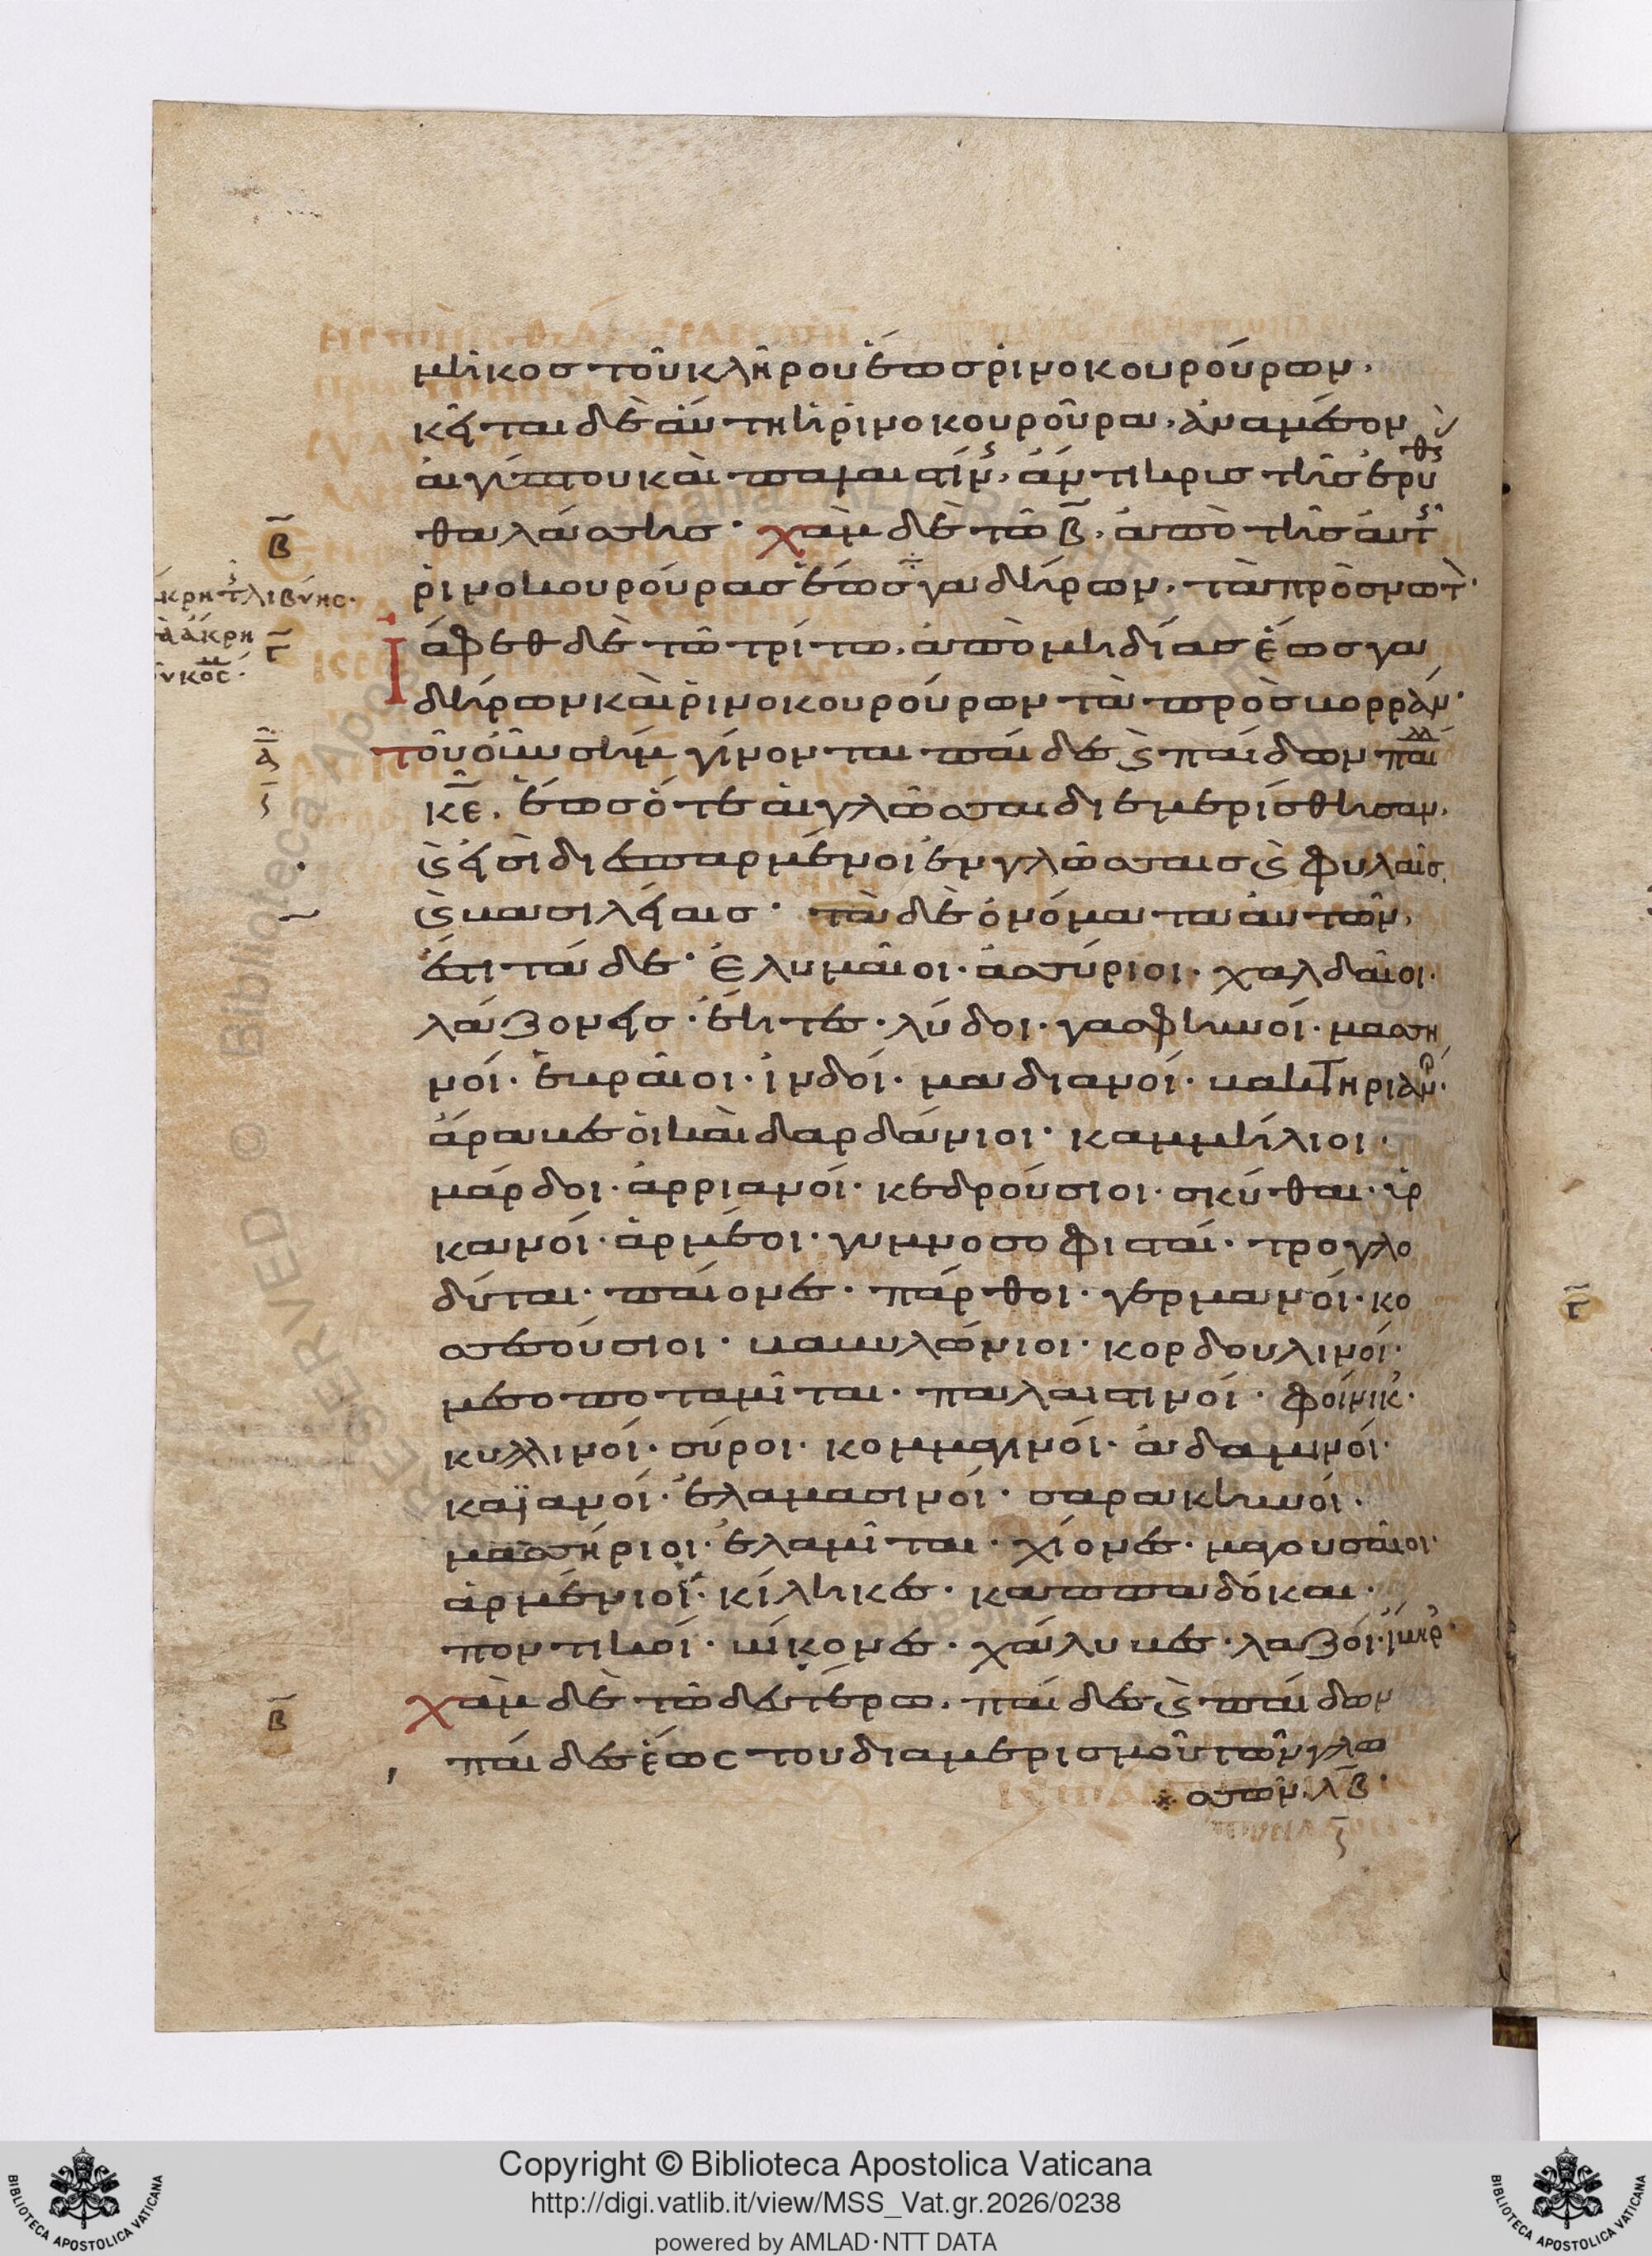 μῆκος τοῦ κλήρου ἕως ῥινοκουρούρων.
κεῖται δὲ αὕτη ἡ ῥινοκουροῦρα, ἀναμέσον
αἰγύπτου καὶ παλαιστίν, ἀντικρὺς τῆς ἐρυθρς
θαλάσσης· χὰμ δὲ τῶ β̄, ἀπὸ τῆς αὐτ
ῥινοκουρούρας ἕως γαδείρων, τὰ πρὸς νότ·
ἰάφεθ δὲ τῶ τρίτω, ἀπὸ μηδίας ἕως γα
δείρων καὶ ῥινοκουρούρων τὰ πρὸς βορρὰν·
τοῦ οὖν σὴμ γίνονται παίδες ϗ παίδων παῖ
κε̄. ἕως ὅτε αἱ γλῶσσαι διεμερίσθησαν,
ϗ εἰσὶ διεσπαρμένοι ἐν γλώσσαις ϗ φυλαῖς
ϗ βασιλείαις· τὰ δὲ ὀνόματα αὐτῶν,
ἔστι τάδε· ἐλυμαῖοι· ἀσσύριοι· χαλδαῖοι·
λάζονες· λύδοι· γασφηνοί· μασση
νοί· ἑβραῖοι· ἰνδοί· μαδιανοί· βακτηριαν·
ἄραβες οἱ καὶ δαρδάνιοι· καμμήλιοι·
μάρδοι· ἀρριανοί· κεδρούσιοι· σκύθαι· ὑρ
κανοί· ἀρμέσοι· γυμνοσοφισταί· τρογλο
δύται· παίονες· πάρθοι· γερμανοί· κο
σσεούσιοι· βαβυλώνιοι· κορδουλινοί·
μεσοποταμῖται· παλαιστινοί· φοίνικ·
κυλλινοί· σύροι· κομμαγινοί· ἀδαμινοί·
καϊανοί· ἐλαμασινοί· σαρακηνοί·
μασσήριοι· ἐλαμῖται· χίονες· μαγουσαῖοι·
ἀρμένιοι· κίληκες· καππαδόκαι·
ποντικοί· βίκονες· χάλυβες· λαζοί· ἴβηρ·
χὰμ δὲ τῶ δευτέρω, παίδες ϗ παίδων
παίδες ἕως του διαμερισμοῦ τῶν γλω
σσων, λβ̄·
β̄
λιβύης·
ἄκρη
γ̄
β̄
Copyright © Biblioteca Apostolica Vaticana
http://digi.vatlib.it/view/MSS_Vat.gr.2026/0238
powered by AMLAD·NTT DATA
BIBLIOTECA APOSTOLICA VATICANA
BIBLIOTECA APOSTOLICA VATICANA